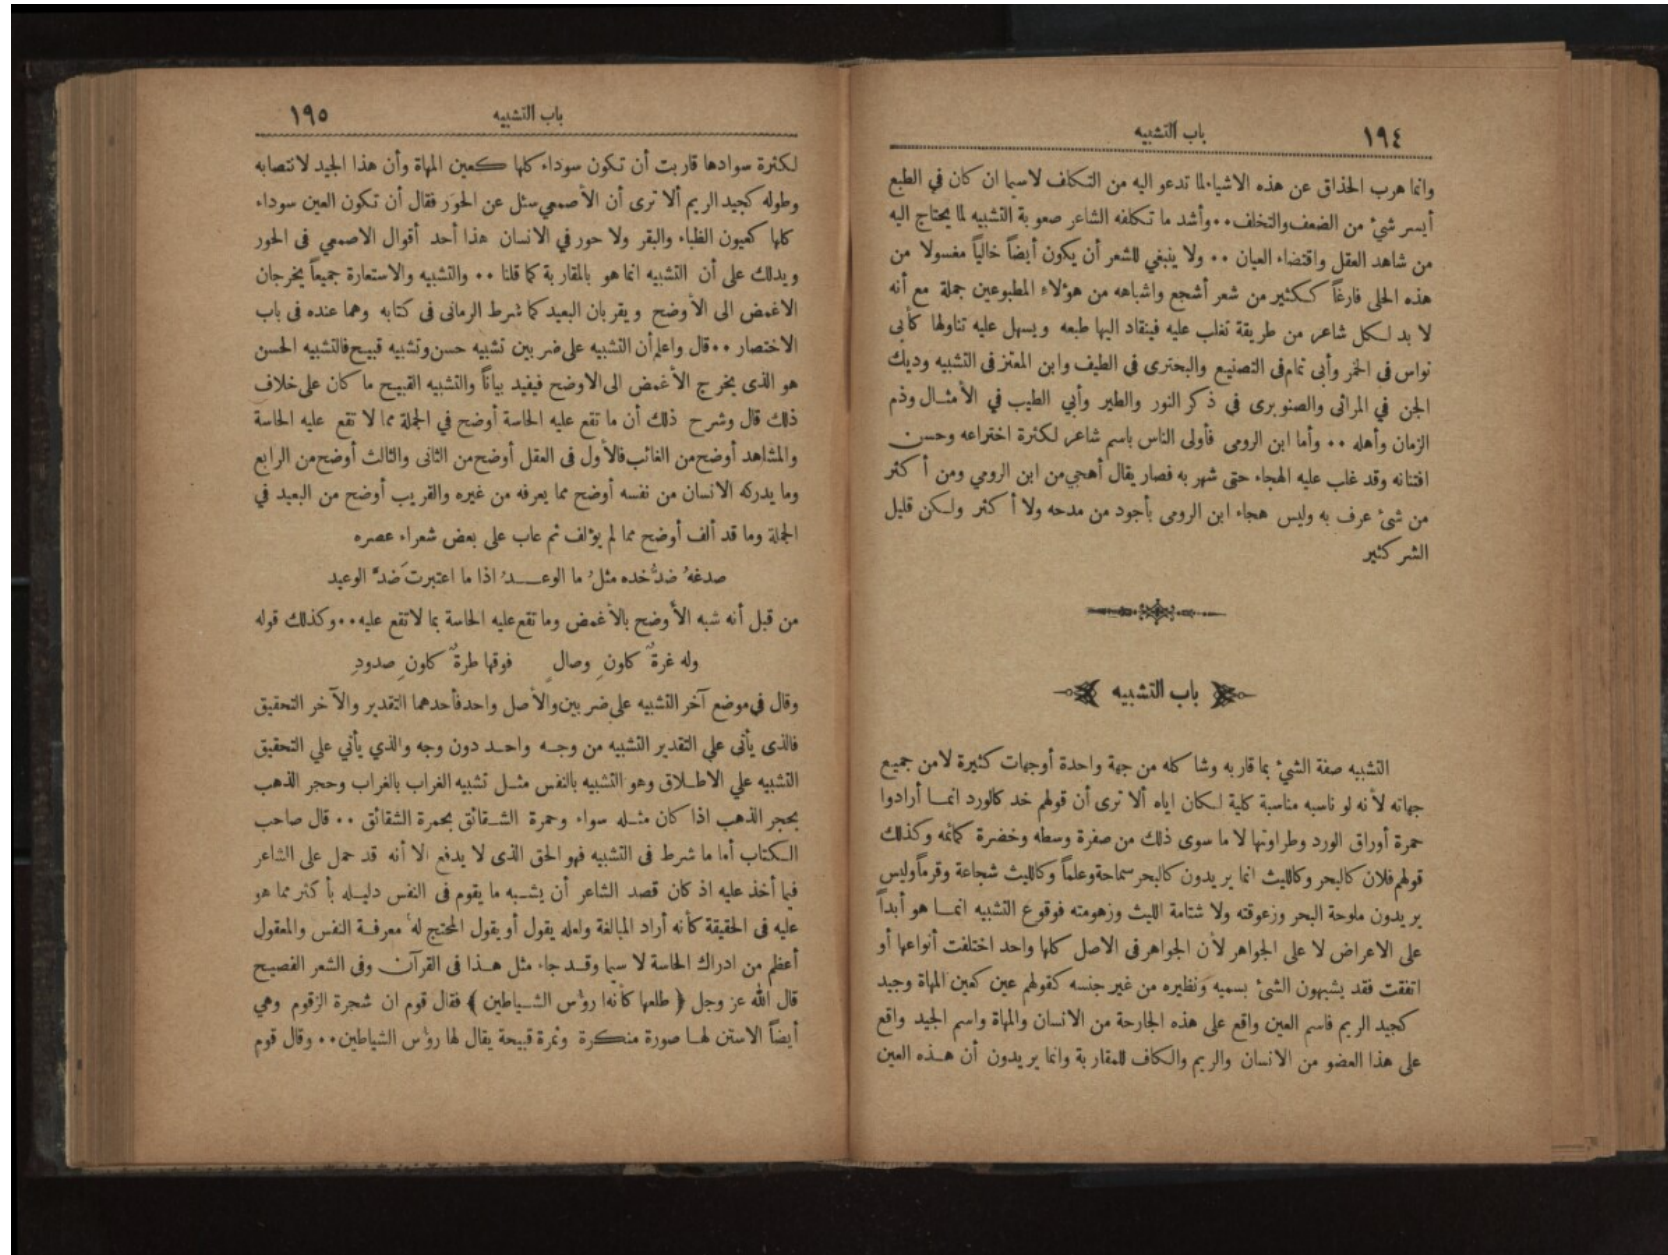 ١٩٤
باب التشبيه
وانما هرب الحذاق عن هذه الاشياء لما تدعو اليه من التكلف لاسيما ان كان في الطبع
أيسر شيء من الضعف والتخلف ٠٠ وأشد ما تكلفه الشاعر صعوبة التشبيه لما يحتاج اليه
من شاهد العقل واقتضاء العيان ٠٠ ولا ينبغي للشعر أن يكون أيضاً خالياً مغسولا من
هذه الحلى فارغاً ككثير من شعر أشجع واشباهه من هؤلاء المطبوعين جملة مع أنه
لا بد لكل شاعر من طريقة تغلب عليه فينقاد اليها طبعه ويسهل عليه تناولها كأبى
نواس فى الخمر وأبى تمام فى التصنيع والبحترى فى الطيف وابن المعتز فى التشبيه وديك
الجن في المراثى والصنوبرى فى ذكر النور والطير وأبي الطيب في الأمثال وذم
الزمان وأهله ٠٠ وأما ابن الرومى فأولى الناس باسم شاعر لكثرة اختراعه وحسن
افتنانه وقد غلب عليه الهجاء حتى شهر به فصار يقال أهجى من ابن الرومي ومن أكثر
من شئ عرف به وليس هجاء ابن الرومى بأجود من مدحه ولا أكثر ولكن قليل
الشر كثير
باب التشبيه
التشبيه صفة الشئ بما قاربه وشاكله من جهة واحدة أوجهات كثيرة لامن جميع
جهاته لأنه لو ناسبه مناسبة كلية لكان اياه ألا ترى أن قولهم خد كالورد انما أرادوا
حمرة أوراق الورد وطراوتها لا ما سوى ذلك من صفرة وسطه وخضرة كمائمه وكذلك
قولهم فلان كالبحر وكالليث انما يريدون كالبحر سماحة وعلماً وكالليث شجاعة وقرماً وليس
يريدون ملوحة البحر وزعوقته ولا شتامة الليث وزهومته فوقوع التشبيه انما هو أبداً
على الاعراض لا على الجواهر لأن الجواهر فى الاصل كلها واحد اختلفت أنواعها أو
اتفقت فقد يشبهون الشئ بسميه ونظيره من غير جنسه كقولهم عين كعين المهاة وجيد
كجيد الريم فاسم العين واقع على هذه الجارحة من الانسان والمهاة واسم الجيد واقع
على هذا العضو من الانسان والريم والكاف للمقاربة وانما يريدون أن هذه العين
باب التشبيه
١٩٥
لكثرة سوادها قاربت أن تكون سوداء كلها كعين المهاة وأن هذا الجيد لانتصابه
وطوله كجيد الريم ألا ترى أن الأصمعي سئل عن الحوَر فقال أن تكون العين سوداء
كلها كعيون الظباء والبقر ولا حور في الانسان هذا أحد أقوال الاصمعي فى الحور
ويدلك على أن التشبيه انما هو بالمقاربة كما قلنا ٠٠ والتشبيه والاستعارة جميعاً يخرجان
الاغمض الى الأوضح ويقربان البعيد كما شرط الرمانى فى كتابه وهما عنده فى باب
الاختصار ٠٠ قال واعلم أن التشبيه على ضربين تشبيه حسن وتشبيه قبيح فالتشبيه الحسن
هو الذى يخرج الأغمض الى الاوضح فيفيد بياناً والتشبيه القبيح ما كان على خلاف
ذلك قال وشرح ذلك أن ما تقع عليه الحاسة أوضح في الجملة مما لا تقع عليه الحاسة
والمشاهد أوضح من الغائب فالأول فى العقل أوضح من الثانى والثالث أوضح من الرابع
وما يدركه الانسان من نفسه أوضح مما يعرفه من غيره والقريب أوضح من البعيد في
الجملة وما قد ألف أوضح مما لم يؤلف ثم عاب على بعض شعراء عصره
صدغهُ ضدُّ خده مثلُ ما الوعـــدُ اذا ما اعتبرت ضدَّ الوعيد
من قبل أنه شبه الأوضح بالأغمض وما تقع عليه الحاسة بما لاتقع عليه ٠٠ وكذلك قوله
وله غرةٌ كاونِ وصالٍ فوقها طرةٌ كاونِ صدودِ
وقال في موضع آخر التشبيه على ضربين والأصل واحد فأحدهما التقدير والآخر التحقيق
فالذى يأتى على التقدير التشبيه من وجه واحد دون وجه والذي يأتي علي التحقيق
التشبيه علي الاطلاق وهو التشبيه بالنفس مثل تشبيه الغراب بالغراب وحجر الذهب
بحجر الذهب اذا كان مثله سواء وحمرة الشقائق بحمرة الشقائق ٠٠ قال صاحب
الكتاب أما ما شرط فى التشبيه فهو الحق الذى لا يدفع الا أنه قد حمل على الشاعر
فيما أخذ عليه اذ كان قصد الشاعر أن يشبه ما يقوم فى النفس دليله بأكثر مما هو
عليه فى الحقيقة كأنه أراد المبالغة ولعله يقول أو يقول المحتج له معرفة النفس والمعقول
أعظم من ادراك الحاسة لا سيما وقد جاء مثل هذا فى القرآن وفى الشعر الفصيح
قال الله عز وجل ﴿ طلعها كأنها رؤس الشياطين ﴾ فقال قوم ان شجرة الزقوم وهي
أيضاً الاستن لها صورة منكرة وثمرة قبيحة يقال لها رؤس الشياطين ٠٠ وقال قوم